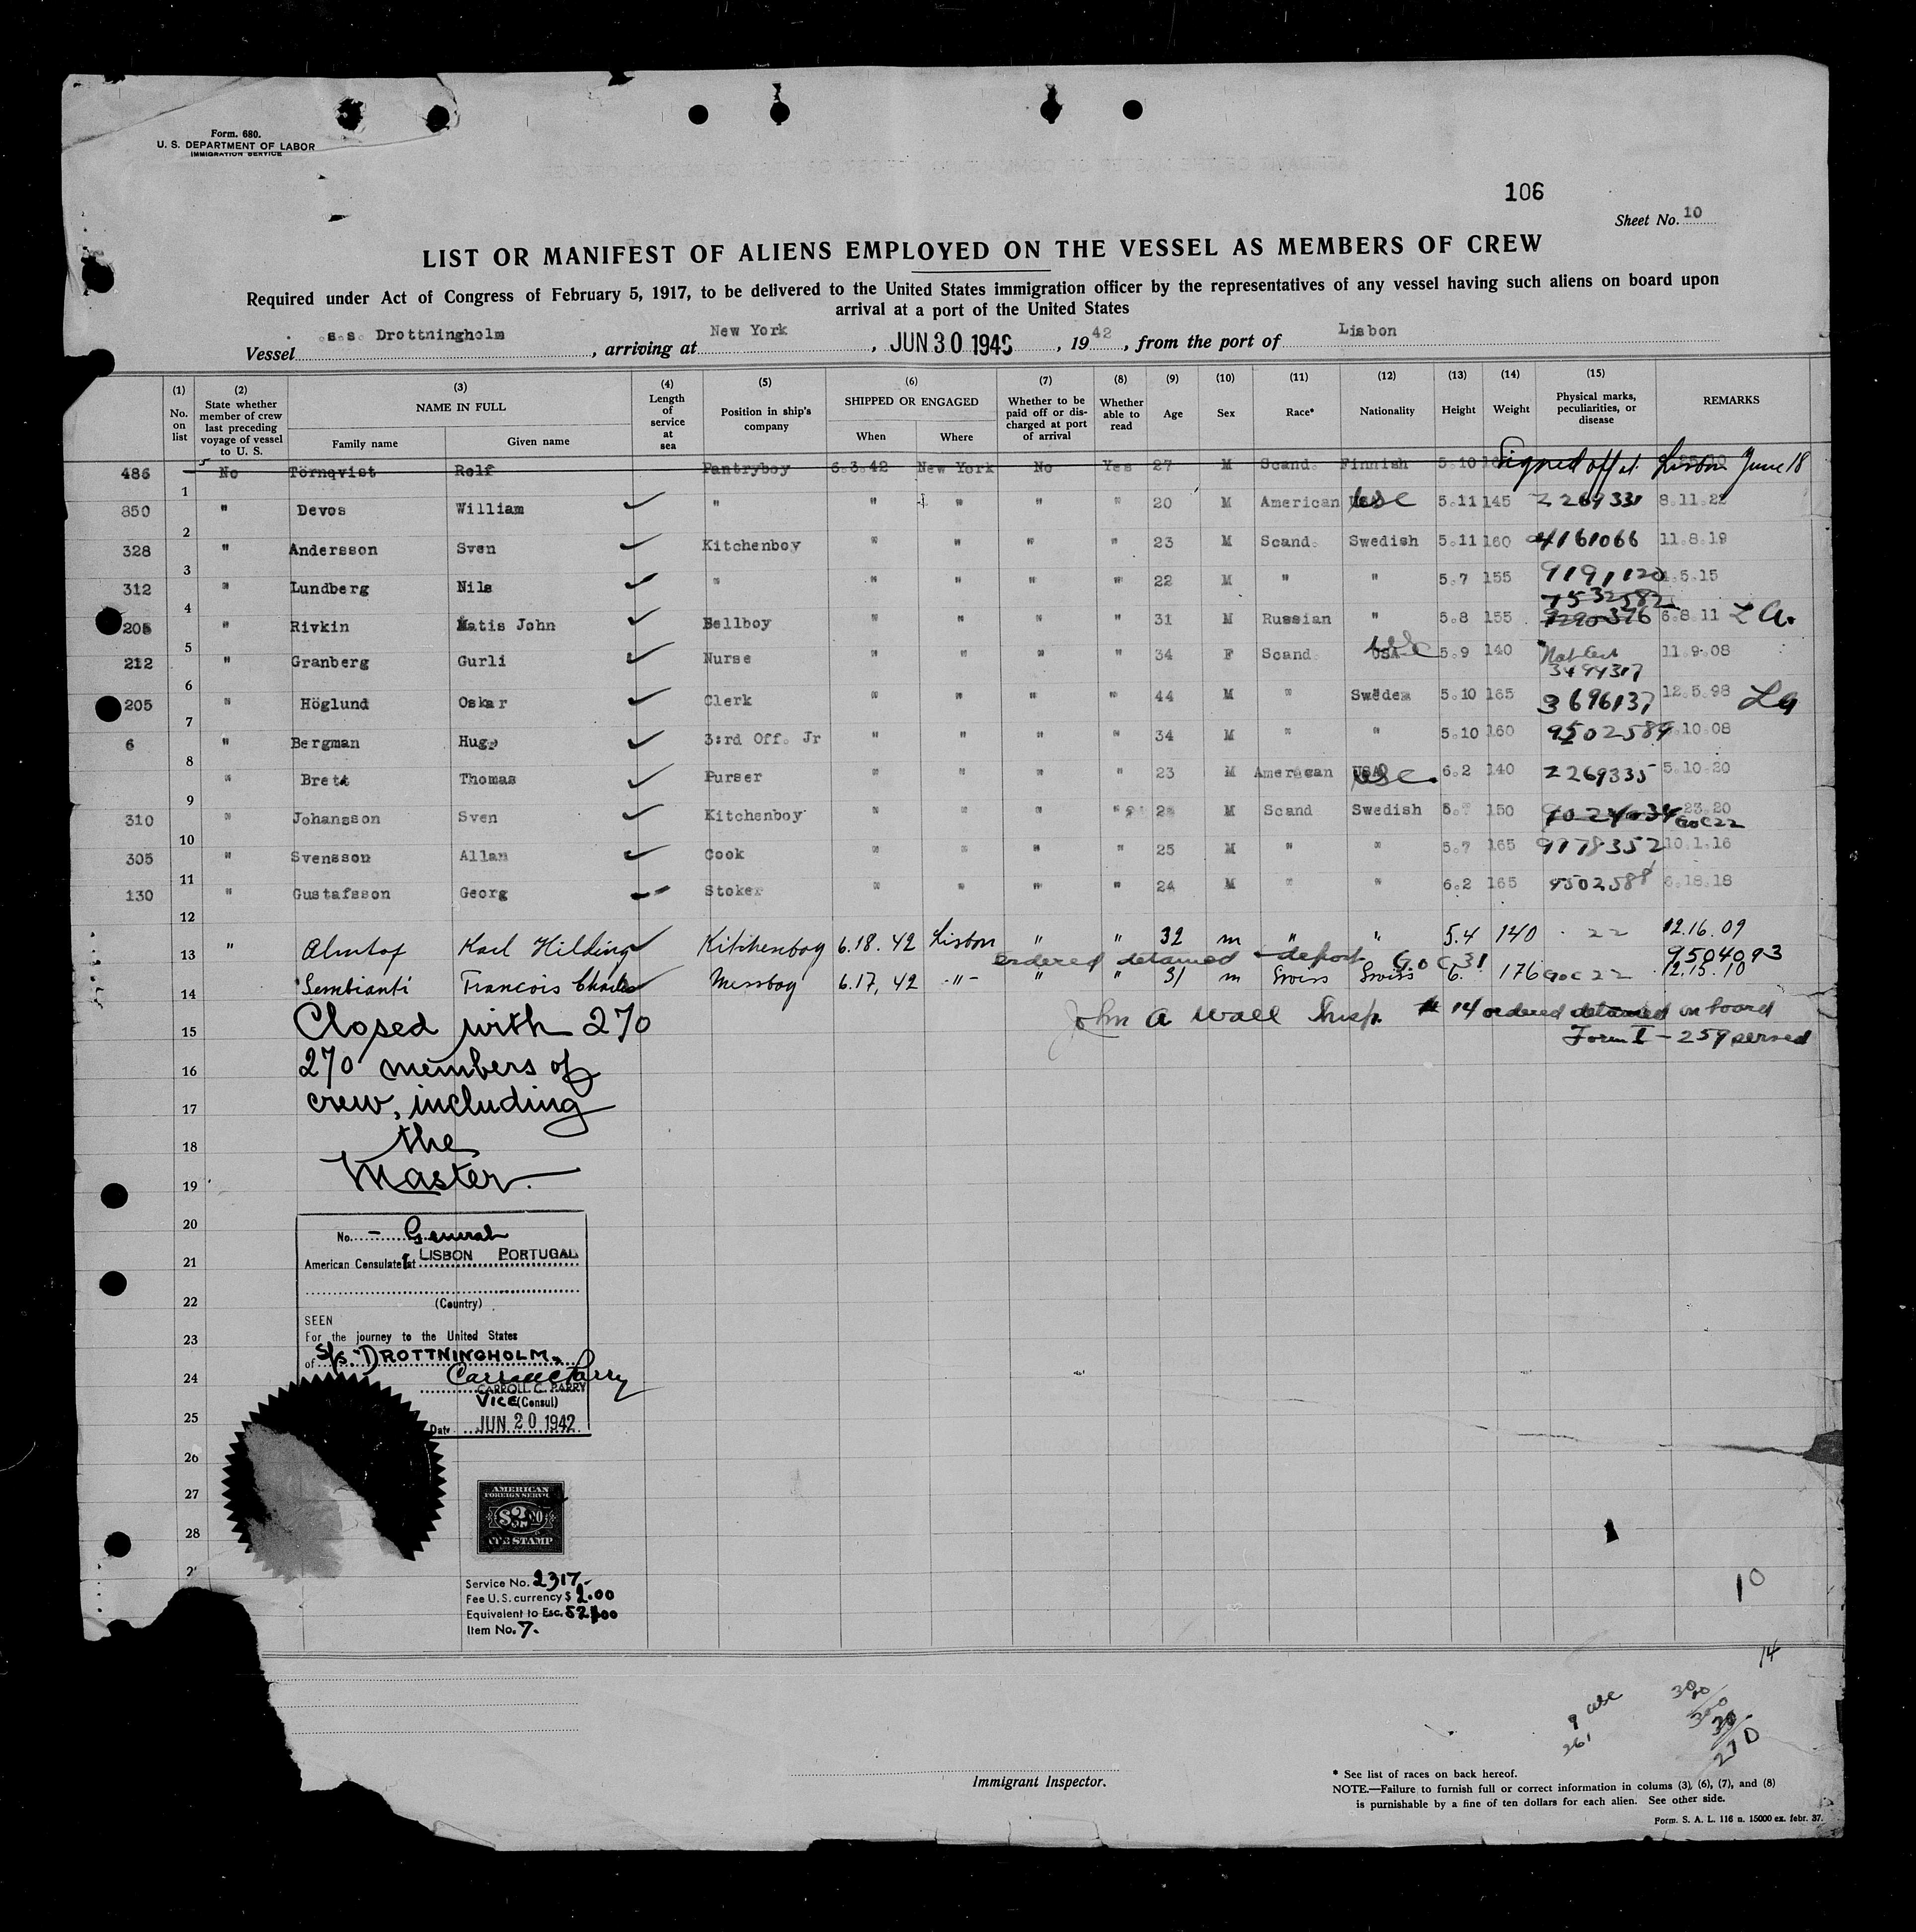 Form. 680.
U. S. DEPARTMENT OF LABOR
IMMIGRATION SERVICE
106
Sheet No. 10
LIST OR MANIFEST OF ALIENS EMPLOYED ON THE VESSEL AS MEMBERS OF CREW
Required under Act of Congress of February 5, 1917, to be delivered to the United States immigration officer by the representatives of any vessel having such aliens on board upon
arrival at a port of the United States
Vessel s.s. Drottningholm, arriving at New York, JUN 30 194, 1942, from the port of Lisbon
(1) No. on list (2) State whether member of crew last preceding voyage of vessel to U. S. (3) NAME IN FULL Family name Given name (4) Length of service at sea (5) Position in ship's company (6) SHIPPED OR ENGAGED When Where (7) Whether to be paid off or discharged at port of arrival (8) Whether able to read (9) Age (10) Sex (11) Race* (12) Nationality (13) Height (14) Weight (15) Physical marks, peculiarities, or disease REMARKS
486 No Törnqvist Rolf Pantryboy 6.3.42 New York No Yes 27 M Scand. Finnish 5.10 Signed off at Lisbon June 18
1
850 " Devos William ✓ " " " " " 20 M American USA usc 5.11 145 Z 269331 8.11.22
2
328 " Andersson Sven ✓ Kitchenboy " " " " 23 M Scand. Swedish 5.11 160 4161066 11.8.19
3
312 " Lundberg Nils ✓ " " " " " 22 M " " 5.7 155 9191120 .5.15
4 7532582
205 " Rivkin Matis John ✓ Bellboy " " " " 31 M Russian " 5.8 155 7290376 6.8.11
5
212 " Granberg Gurli ✓ Nurse " " " " 34 F Scand. USA usc 5.9 140 Nat Cert 3494317 11.9.08
6
205 " Höglund Oskar ✓ Clerk " " " " 44 M " Sweden 5.10 165 3696137 12.5.98
7
6 " Bergman Hugo ✓ 3:rd Off. Jr " " " " 34 M " " 5.10 160 9502589 .10.08
8
" Brett Thomas ✓ Purser " " " " 23 M American USA usc. 6.2 140 Z 269335 5.10.20
9
310 " Johansson Sven ✓ Kitchenboy " " " " M Scand Swedish 5. 150 9024034 .23.20
GOC22
10
305 " Svensson Allan ✓ Cook " " " " 25 M " " 5.7 165 9178352 10.1.16
11
130 " Gustafsson Georg Stoker " " " " 24 M " " 6.2 165 9502588 6.18.18
12
13 " Almtof Karl Hilding ✓ Kitchenboy 6.18.42 Lisbon " " 32 m " " 5.4 140 22 12.16.09
ordered detained + deport GOC 31 9504093
14 Sembianti Francois Charles ✓ Messboy 6.17,42 -"- " " 31 m Swiss Swiss 6. 176 GOC 22 12.15.10
John A Wall Insp. # 14 ordered detained on board
Form I-259 served
Closed with 270
15
270 members of
16
crew, including
17
the
18
Master.
19
20
No. - General
American Consulate at LISBON PORTUGAL
21
(Country)
22
SEEN
For the journey to the United States
23
of S/S. "DROTTNINGHOLM"
24
Carroll C Parry
CARROLL C. PARRY
VICE (Consul)
25
Date JUN 20 1942
26
27
AMERICAN
FOREIGN SERVICE
$2.00
FEE STAMP
28
2
Service No. 2317.-
Fee U.S. currency $ 2.00
Equivalent to Esc. 52$00
Item No. 7.
10
14
9 usc
261
300
30
270
Immigrant Inspector.
* See list of races on back hereof.
NOTE.—Failure to furnish full or correct information in colums (3), (6), (7), and (8)
is punishable by a fine of ten dollars for each alien. See other side.
Form. S. A. L. 116 n. 15000 ex. febr. 37.